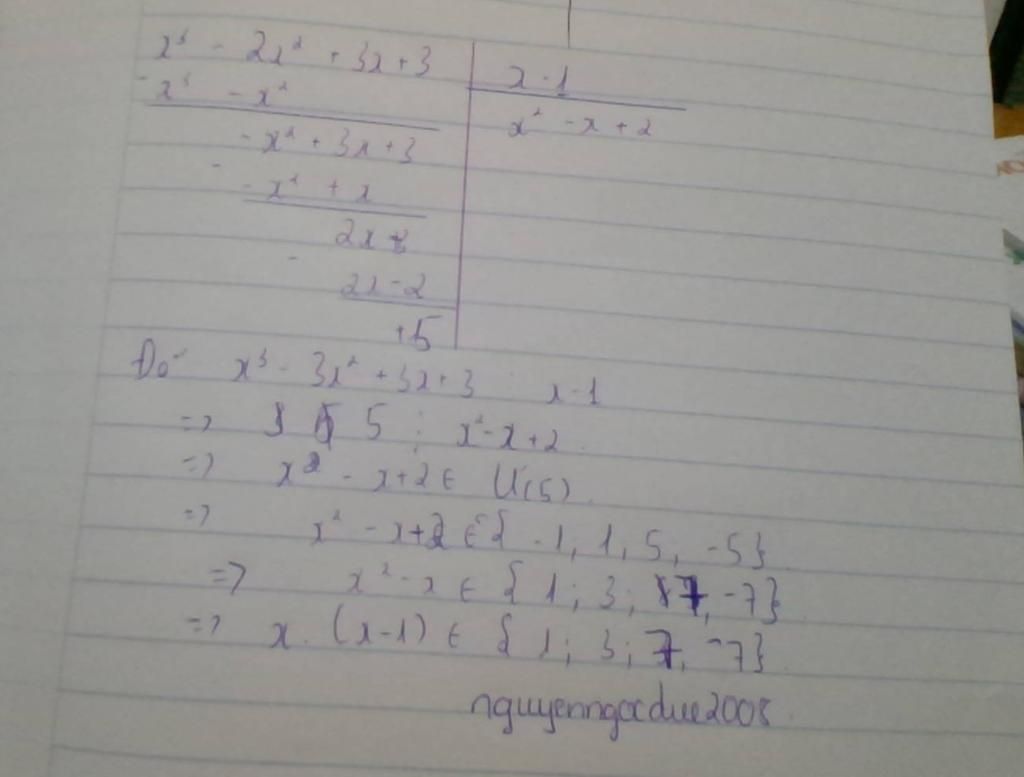 x³ - 2x² + 3x + 3 | x - 1
- x³ - x² | x² - x + 2
- x² + 3x + 3
- - x² + x
2x
- 2x - 2
+5
Do x³ - 3x² + 3x + 3 ⋮ x - 1
=> 5 ⋮ x² - x + 2
=> x² - x + 2 ∈ Ư(5)
=> x² - x + 2 ∈ { -1, 1, 5, -5}
=> x² - x ∈ { 1; 3; 7, -7}
=> x. (x-1) ∈ { 1; 3; 7, -7}
nguyenngocduc2008